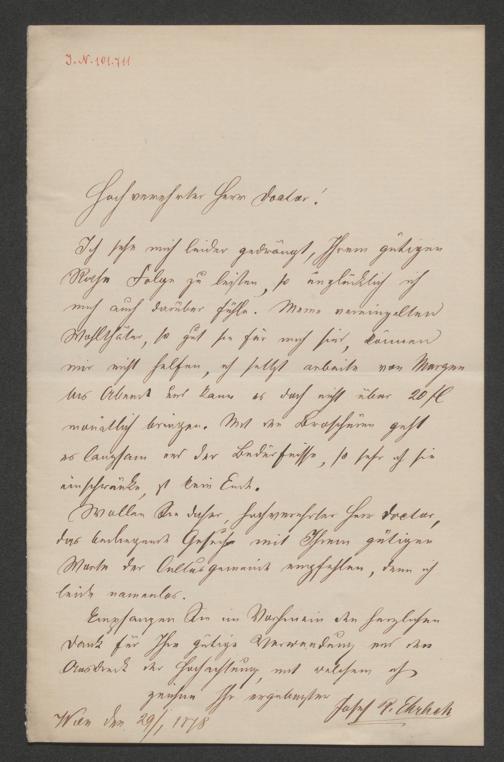 J. N. 101.711
Hochverehrter Herr Doctor!
Ich sehe mich leider gedrängt, Ihrem gütigen
Rathe Folge zu leisten, so unglücklich ich
mich auch darüber fühle. Meine vereinzelten
Wohlthäter, so gut sie für mich sind, können
mir nicht helfen, ich selbst arbeite von Morgen
bis Abend und kann es doch nicht über 20 fl
monatlich bringen. Mit den Broschüren geht
es langsam und der Bedürfnisse, so sehr ich sie
einschränke, ist kein Ende.
Wollen Sie daher, hochverehrter Herr Doctor,
das beiliegende Gesuch mit Ihrem gütigen
Worte der Cultusgemeinde empfehlen, denn ich
leide namenlos.
Empfangen Sie im Vorhinein den herzlichen
Dank für Ihre gütige Verwendung und den
Ausdruck der Hochachtung, mit welchem ich
zeichne Ihr ergebenster
Josef R. Ehrlich
Wien den 29/1 1878